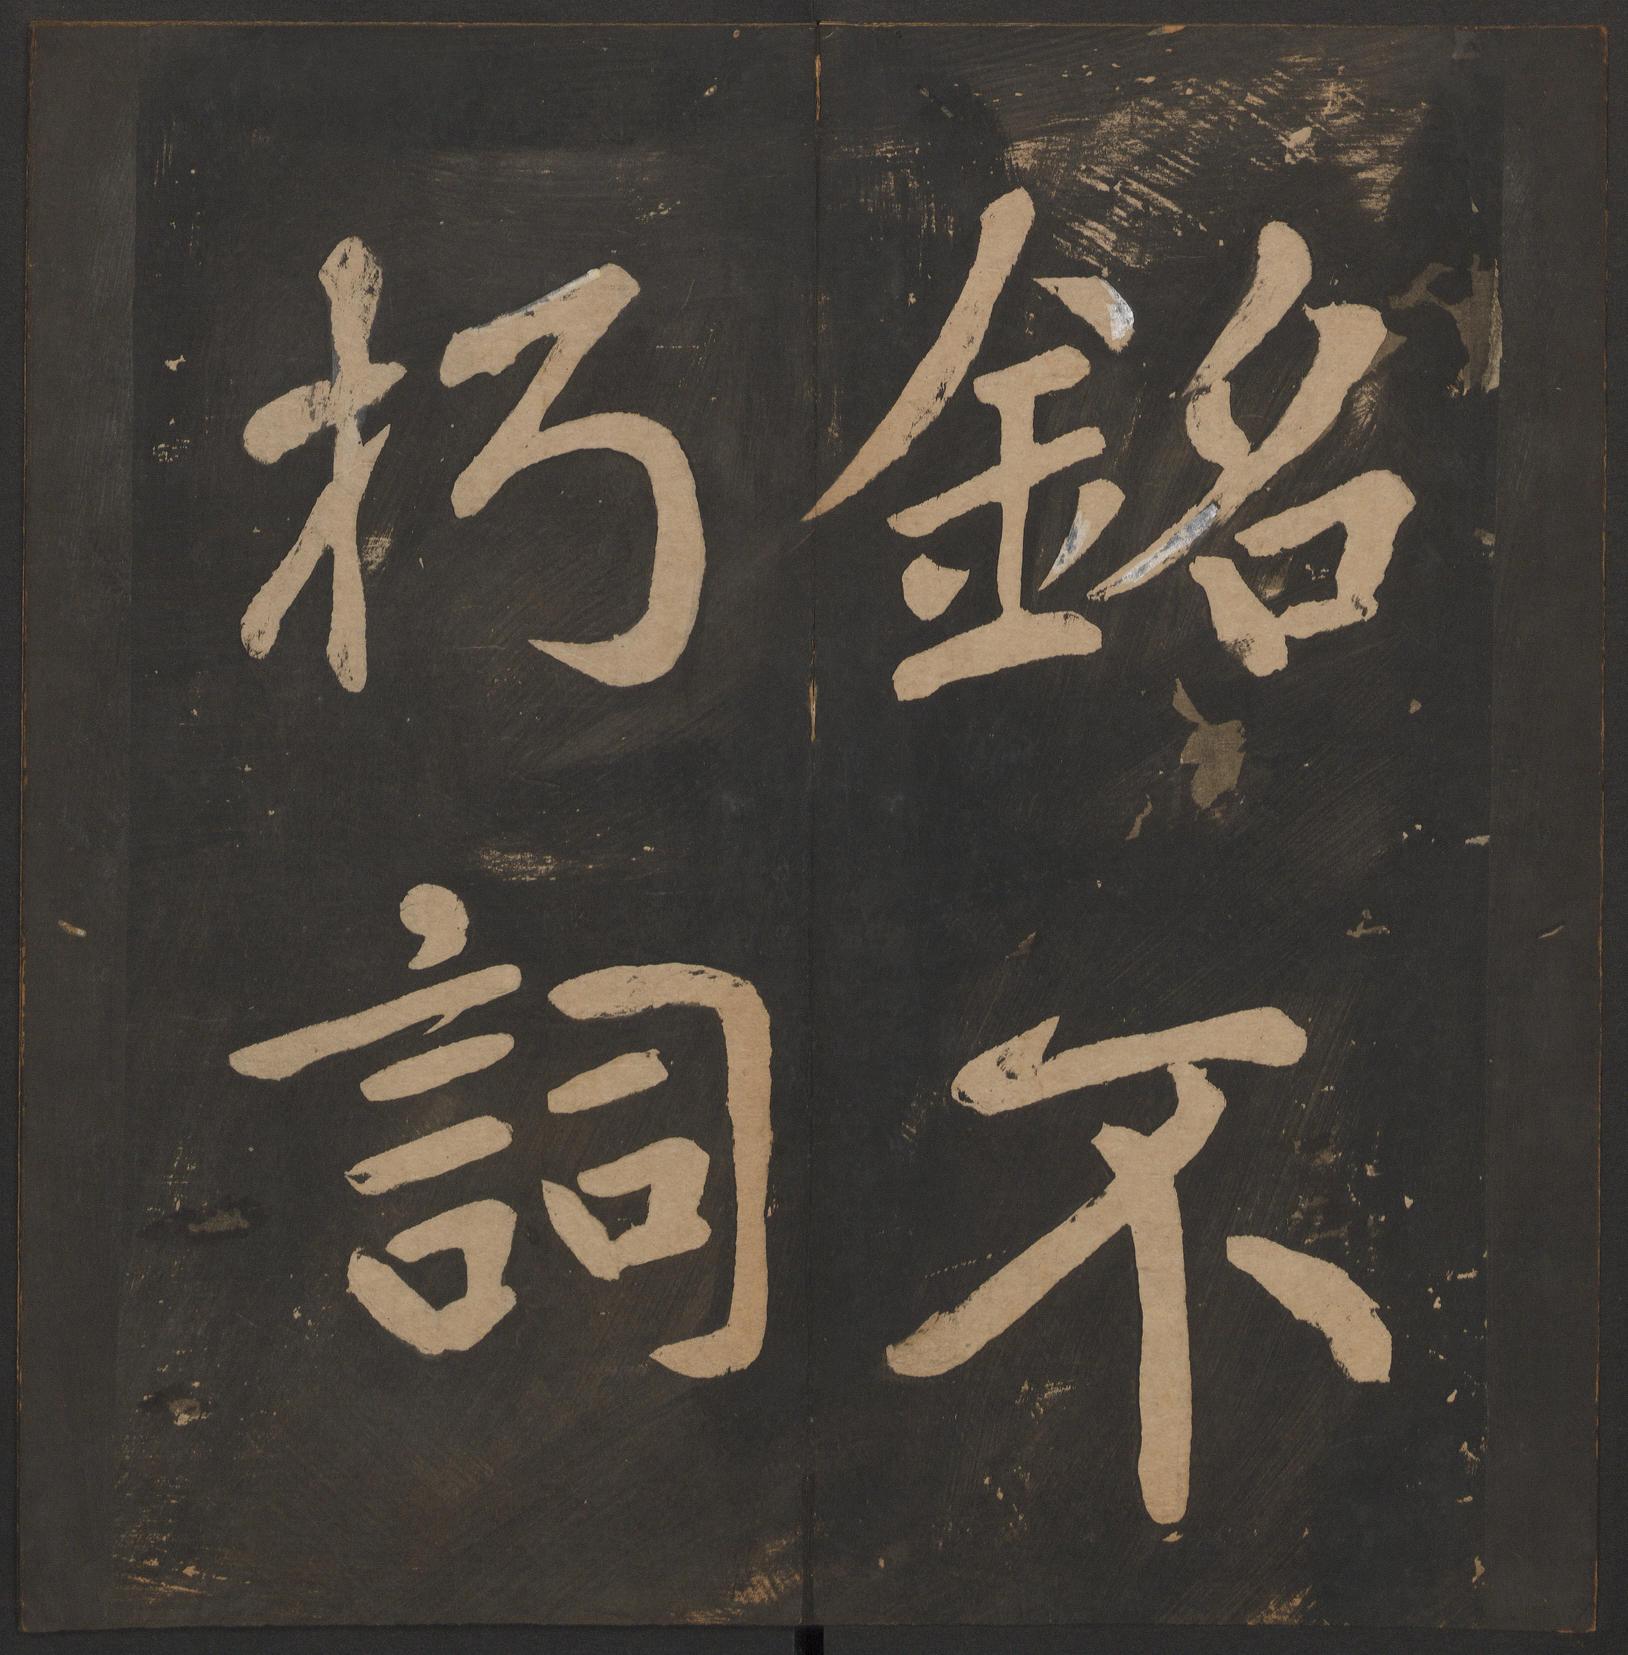 銘不
朽詞